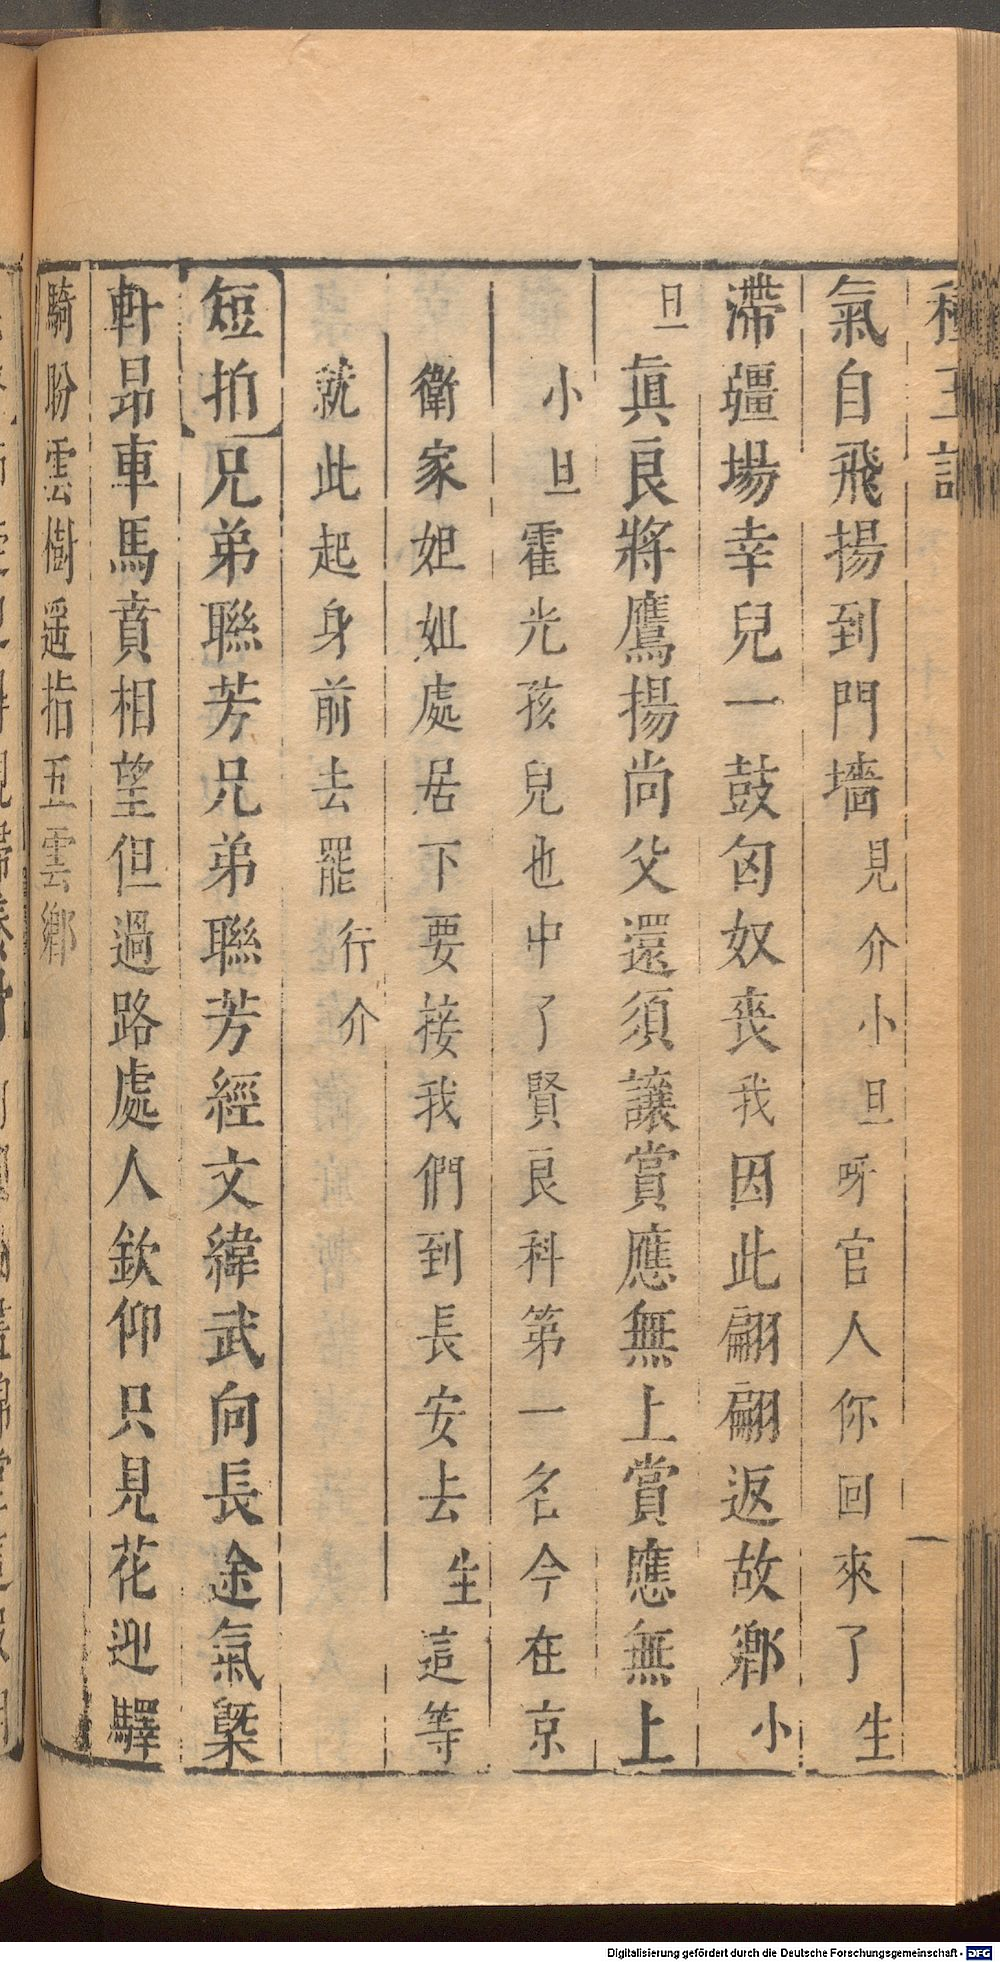 種玉記
氣自飛揚到門墻見介小旦呀官人你回來了生
滯疆場幸兒一鼓囟奴丧我因此翩翩返故鄉小
旦眞良將鷹揚尚父還須讓賞應無上賞應無上
小旦霍光孩兒也中了賢良科第一名今在京
衛家姐姐處居下要接我們到長安去生這等
就此起身前去罷行介
短拍兄弟聯芳兄弟聯芳經文緯武向長途氣槩
軒昂車馬賁相望但過路處人欽仰只見花迎驛
騎盼雲樹遥指五雲鄉
Digitalisierung gefördert durch die Deutsche Forschungsgemeinschaft - DFG